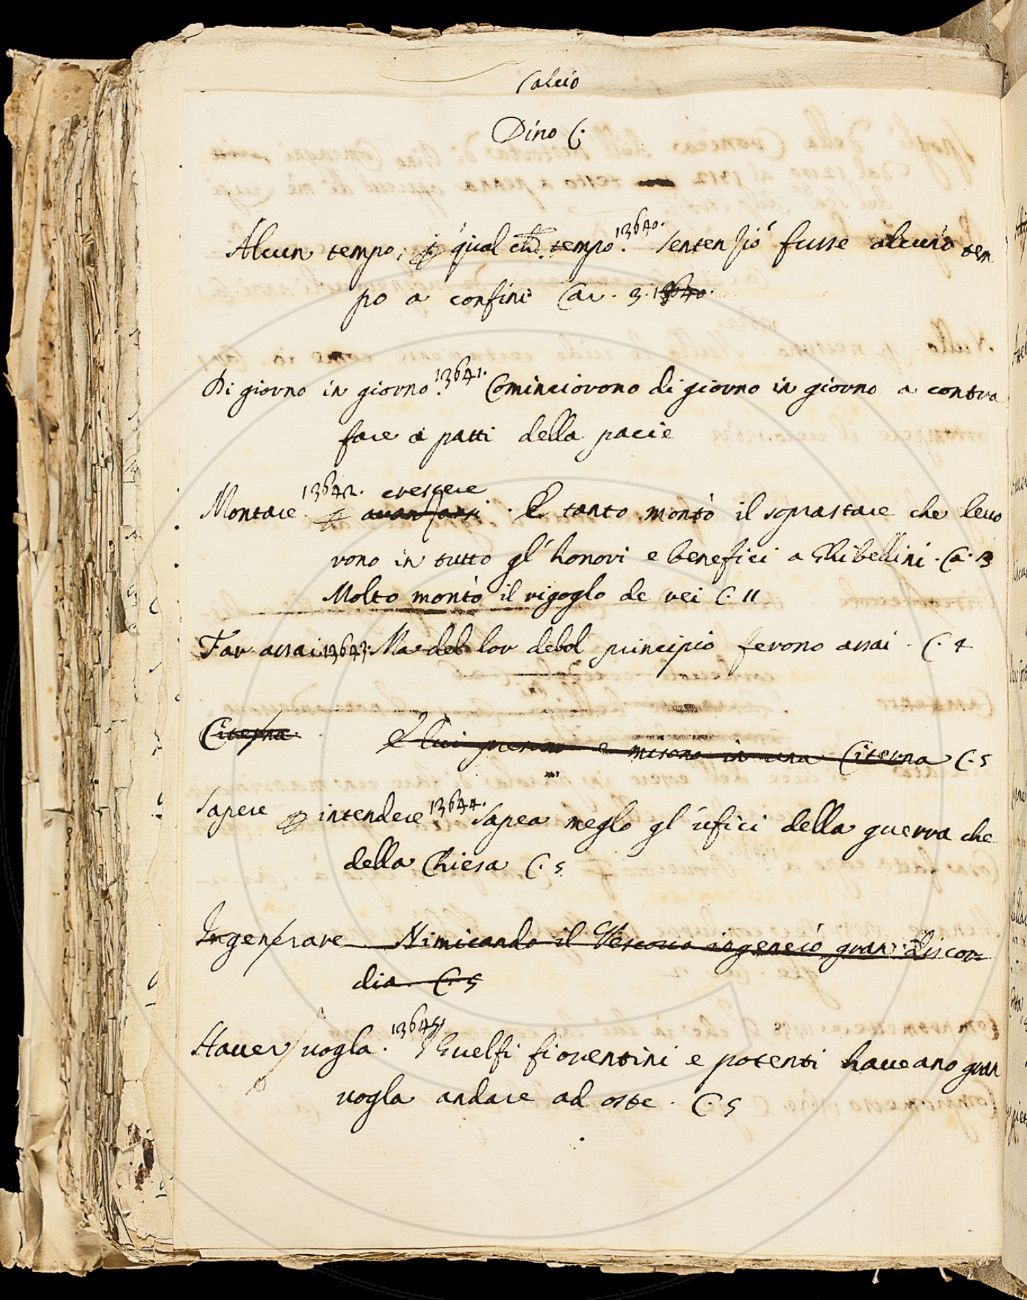 Calcio
Dino C.
Alcun tempo, p qual che tempo. 13640. Sentenziò fusse alcuno tem
po a confini Car. 3. 13640.
Di giorno in giorno. 13641. Cominciorono di giorno in giorno a contra
fare i patti della pacie
Montare 13642. p avanzarsi crescere. E tanto montò il soprastare che levo
rono in tutto gl'honori e benefici a Ghibellini. Ca. 3
Molto montò il rigoglo de rei C. 11
Far assai 13643. Ma deb lor debol principio ferono assai. C. 4
Citerna E lui presono e misono in una Citerna C. 5
Sapere p intendere 13644. Sapea meglo gl'ufici della guerra che
della Chiesa C. 5
Ingenerare Nimicando il Vescovo ingenerò gran discor=
dia. C. 5
Haver vogla. 13645. I Guelfi fiorentini e potenti haveano gran
vogla andare ad oste. C. 5